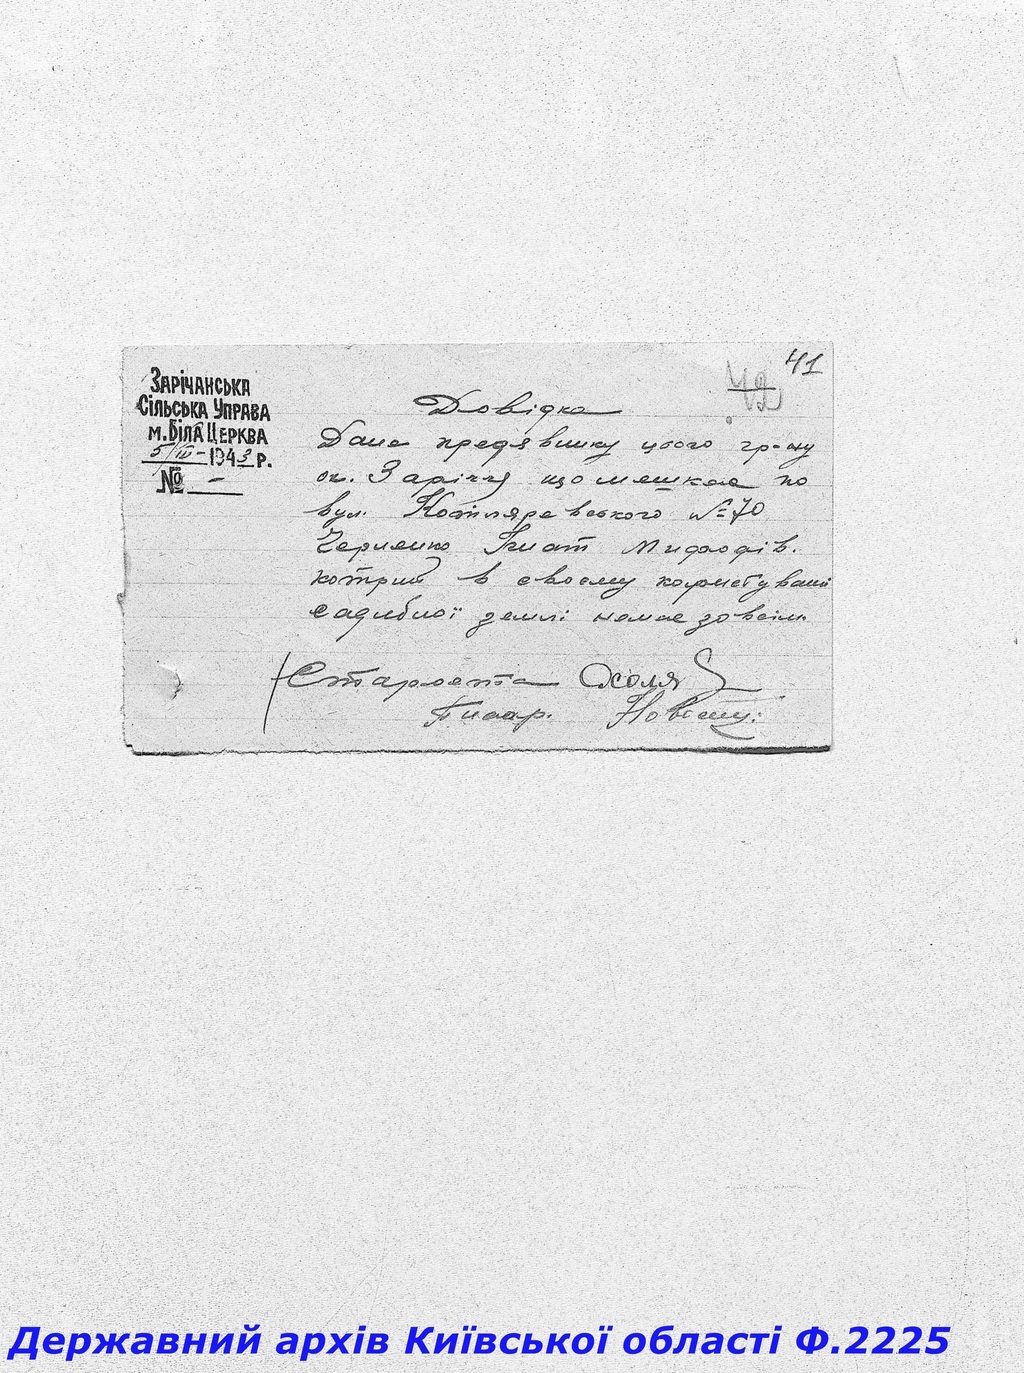 41
42
Зарічанська
Сільська Управа
м. Біла Церква
5/III - 1943 р.
№ -
Довідка
Дана предявнику цього гр-ну
ок. Заріччя що мешкає по
вул. Котляревського №70
Черненко Гнат Мифодів.
котрий в своєму користуванні
садибної землі немає зовсім.
Староста
Писар.
Державний архів Київської області Ф.2225